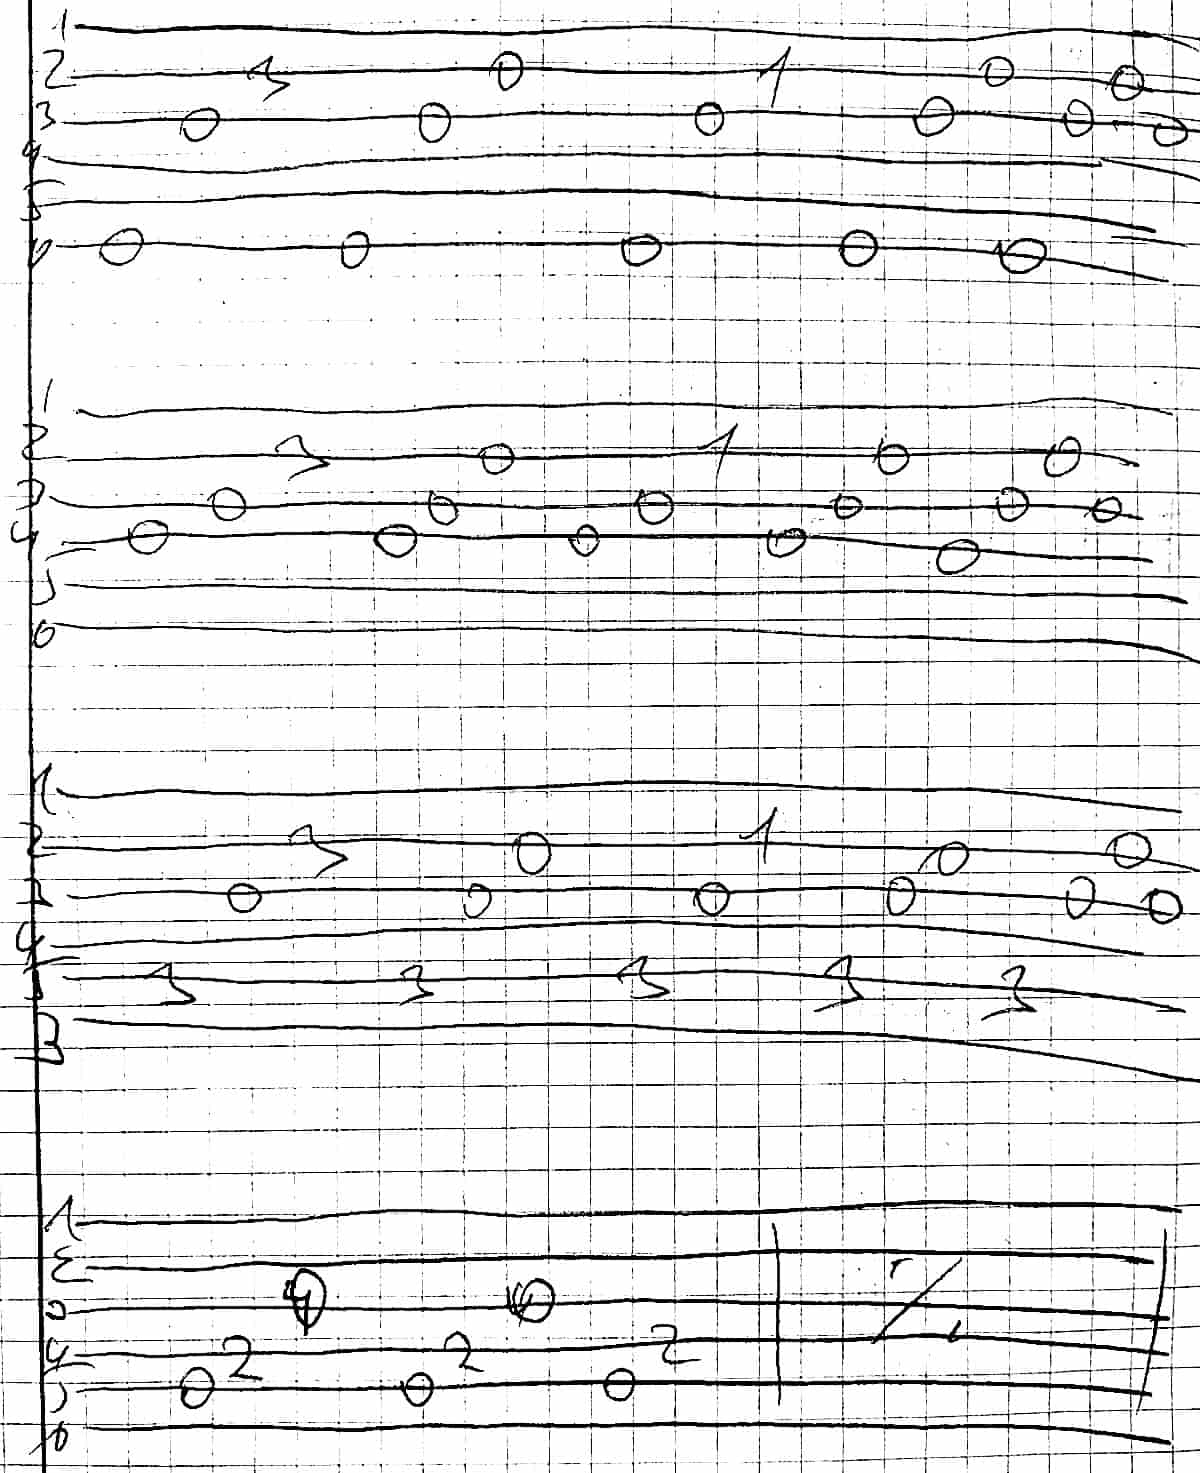 1
2 3 0 1 0 0
3 0 0 0 0 0 0
4
5
6 0 0 0 0 0
1
2 3 0 1 0 0
3 0 0 0 0 0 0
4 0 0 0 0 0
5
6
1
2 3 0 1 0 0
3 0 0 0 0 0 0
4
5 3 3 3 3 3
1
4 2 2 2
5 0 0 0
6